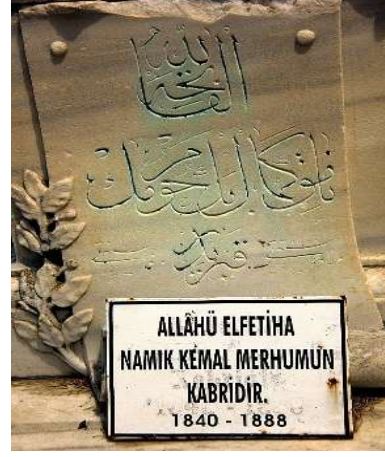 لله الفاتحه
نامق كمال بك مرحومك
قبريدر
ALLÂHÜ ELFETİHA
NAMIK KEMAL MERHUMUN
KABRİDİR.
1840 - 1888